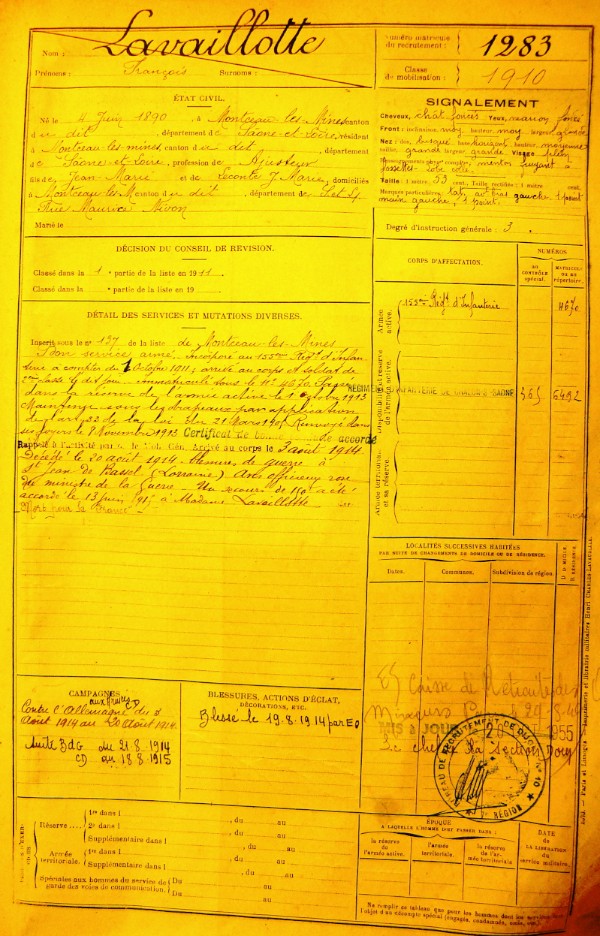 Nom : Lavaillotte
Prénoms : François Surnoms :
Numéro matricule du recrutement : 1283
Classe de mobilisation : 1910
ÉTAT CIVIL.
Né le 4 Juin 1890, à Montceau les Mines canton
du dit, département de Saône-et-Loire, résident
à Montceau-les-mines, canton du dit, département
de Saône et Loire, profession de Ajusteur
fils de Jean-Marie et de Lecomte J. Marie, domiciliés
à Montceau-les-M canton du dit, département de S. et L.
Rue Maurice
Marié le
SIGNALEMENT
Cheveux, chât foncés Yeux, marron foncé
Front : inclinaison, moy hauteur, moy largeur, grande
Nez : dos, busqué base, horizont hauteur, moyenne
saillie, grande largeur, grande Visage
menton fuyant à
fossettes
Taille : 1 mètre 53 cent. Taille rectifiée : 1 mètre cent.
Marques particulières, tat. av. bras gauche, 1 point
main gauche, 1 point.
Degré d'instruction générale : 3.
DÉCISION DU CONSEIL DE REVISION.
Classé dans la 1e partie de la liste en 1911.
Classé dans la partie de la liste en 19
CORPS D'AFFECTATION.
NUMÉROS
AU CONTRÔLE spécial.
MATRICULE OU AU répertoire.
Armée active.
153me Regt d'Infanterie 4670
Disponibilité et réserve de l'armée active.
REGIMENT D'INFANTERIE DE CHALON S/ SAONE 565 6492
Armée territoriale et sa réserve.
DÉTAIL DES SERVICES ET MUTATIONS DIVERSES.
Inscrit sous le n° 137 de la liste de Montceau-les-Mines
Bon service armé. Incorporé au 153me Regt d'Infan-
terie à compter du 1 Octobre 1911; arrivé au corps et soldat de
2me classe le dit jour. immatriculé sous le N° 4670 Passé
dans la réserve de l'armée active le 1 1913
Maintenu sous les drapeaux par application
de l'art 33 de la loi du 21 Mars 1905 Renvoyé dans
ses foyers le Novembre 1913 Certificat de bonne conduite accordé
Rappelé à l'activité Mob. Gén. Arrivé au corps le 3 août 1914.
Décédé le 20 août 1914. Blessures de guerre à
St Jean de Bassel (Lorraine) Avis officieux
du ministre de la Guerre Un secours de 150f a été
accordé le 13 juin 191 à Madame Lavaillotte
Mort pour la France
LOCALITÉS SUCCESSIVES HABITÉES
PAR SUITE DE CHANGEMENTS DE DOMICILE OU DE RÉSIDENCE.
Dates. Communes. Subdivision de région. D. domicile R. résidence
CAMPAGNES.
aux Armées
Contre l'Allemagne du 3
Août 1914 au 20 Août 1914. CD
du 21.8.1914
CD au 18.8.1915
BLESSURES, ACTIONS D'ÉCLAT,
DÉCORATIONS, ETC.
Blessé le 19-8-1914 par EO
ES Caisse de Retraite des
MIS à JOUR 20 1955
Le chef de la Section
BUREAU DE RECRUTEMENT DE DIJON N° 10
RÉGION
Réserve
1re dans l , du au
2e dans l , du au
Supplémentaire dans l , du au
Armée territoriale.
1re dans l , du au
Supplémentaire dans l , du au
Spéciales aux hommes du service de
garde des voies de communication.
Du au
Du au
ÉPOQUE
À LAQUELLE L'HOMME DOIT PASSER DANS :
la réserve de l'armée active.
l'armée territoriale.
la réserve de l'armée territoriale.
DATE
DE LA LIBÉRATION
du service militaire.
Ne remplir ce tableau que pour les hommes dont les services
l'objet d'un décompte spécial (engagés, condamnés, omis, etc.)
Paris et Limoges. — Imprimerie et librairie militaire Henri CHARLES-LAVAUZELLE.